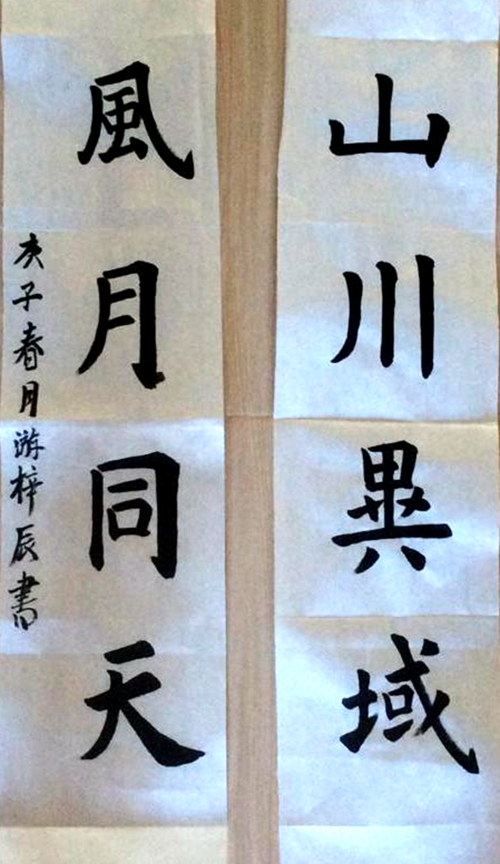 山川異域
風月同天
庚子春月游梓辰書